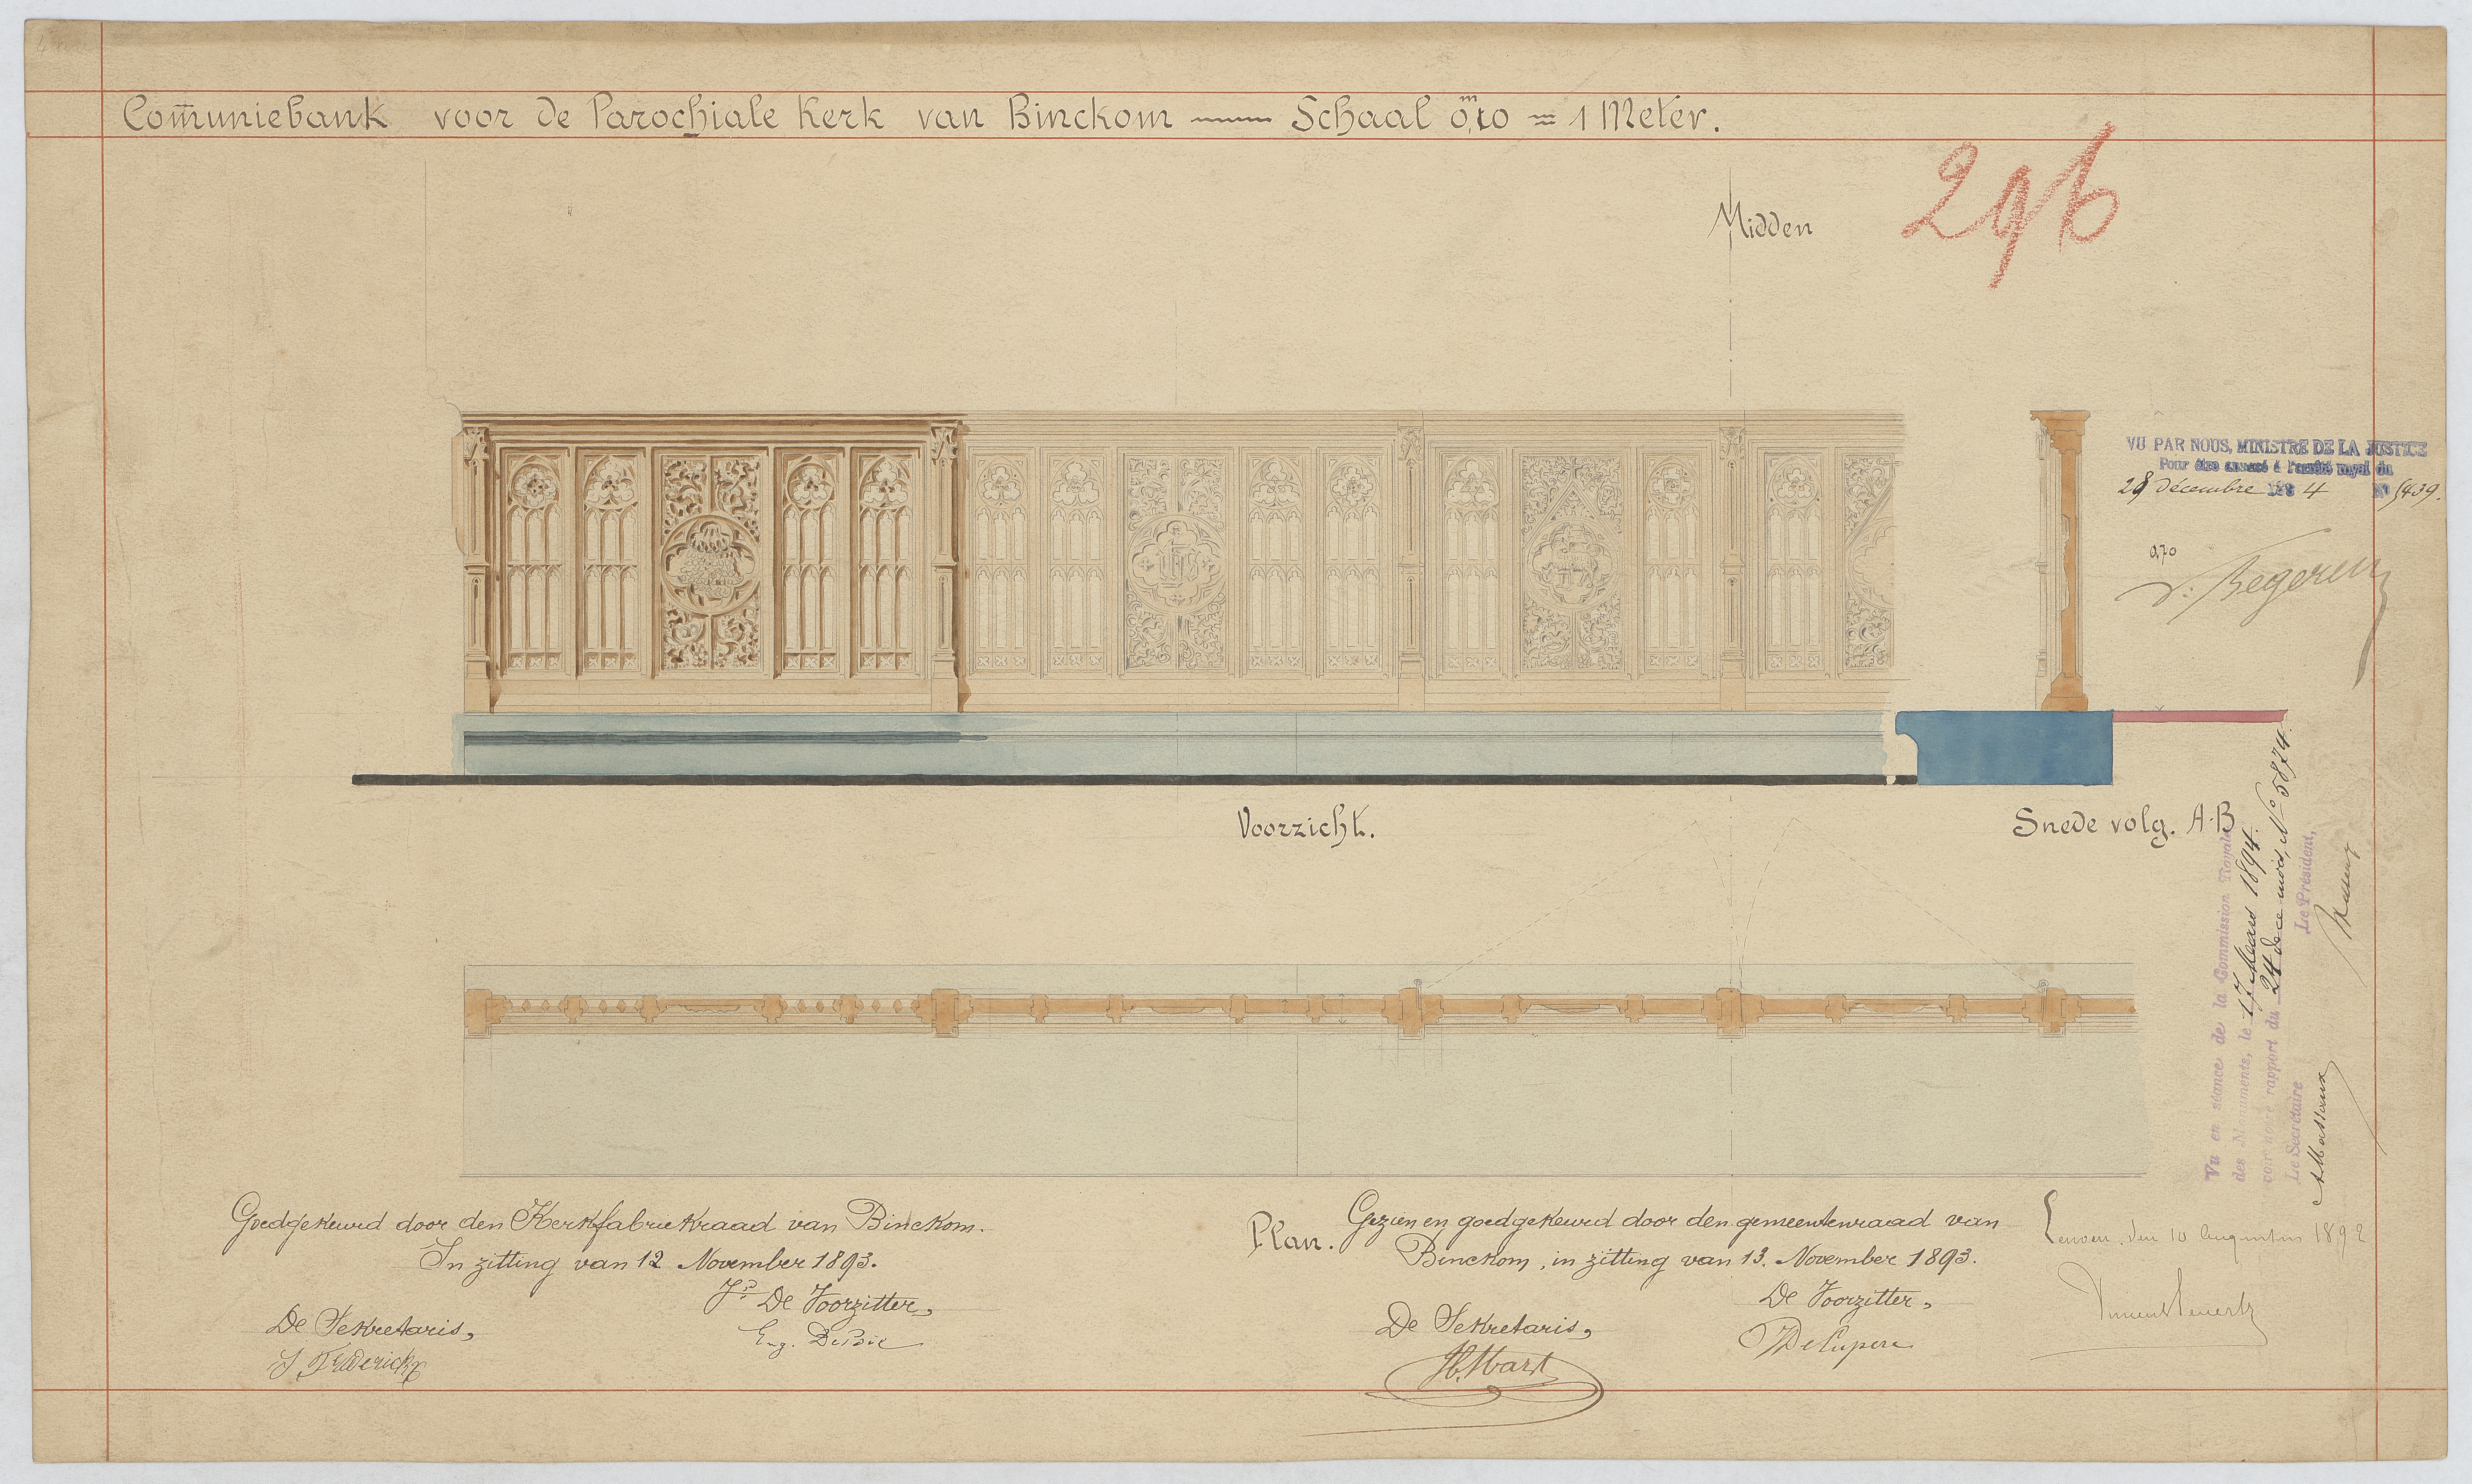 Com̅uniebank voor de Parochiale Kerk van Binckom — Schaal 0,ᵐ10 = 1 Meter.
296
Midden
VU PAR NOUS, MINISTRE DE LA JUSTICE
Pour être annexé à l'arrêté royal du
28 décembre 189 4 N° 5439.
0,70
V. Begerem
Voorzicht.
Snede volg. A-B
Vu en séance de la Commission Royale
des Monuments, le 17 Maars 1894.
voir notre rapport du 24 de ce mois, N° 5874.
Le Secrétaire Le Président,
A Massaux
Plan.
Goedgekeurd door den Kerkfabriekraad van Binckom.
In zitting van 12 November 1893.
De Voorzitter,
De Sekretaris,
Gezien en goedgekeurd door den gemeentenraad van
Binckom, in zitting van 13. November 1893.
De Voorzitter,
De Sekretaris,
Leuven. den 10 Augustus 1892